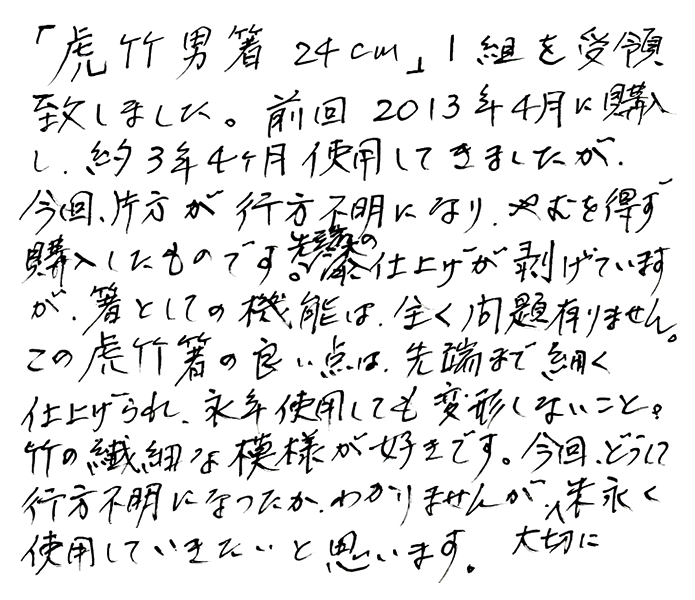 「虎竹男箸 24cm」1組を受領
致しました。前回 2013年4月に購入
し、約3年4ヶ月使用してきましたが、
今回、片方が行方不明になり、やむを得ず
購入したものです。先端の
仕上げが剥げています
が、箸としての機能は、全く問題有りません。
この虎竹箸の良い点は、先端まで細く
仕上げられ、永年使用しても変形しないこと。
竹の繊細な模様が好きです。今回、どうして
行方不明になったか、わかりませんが、末永く
使用していきたいと思います。大切に